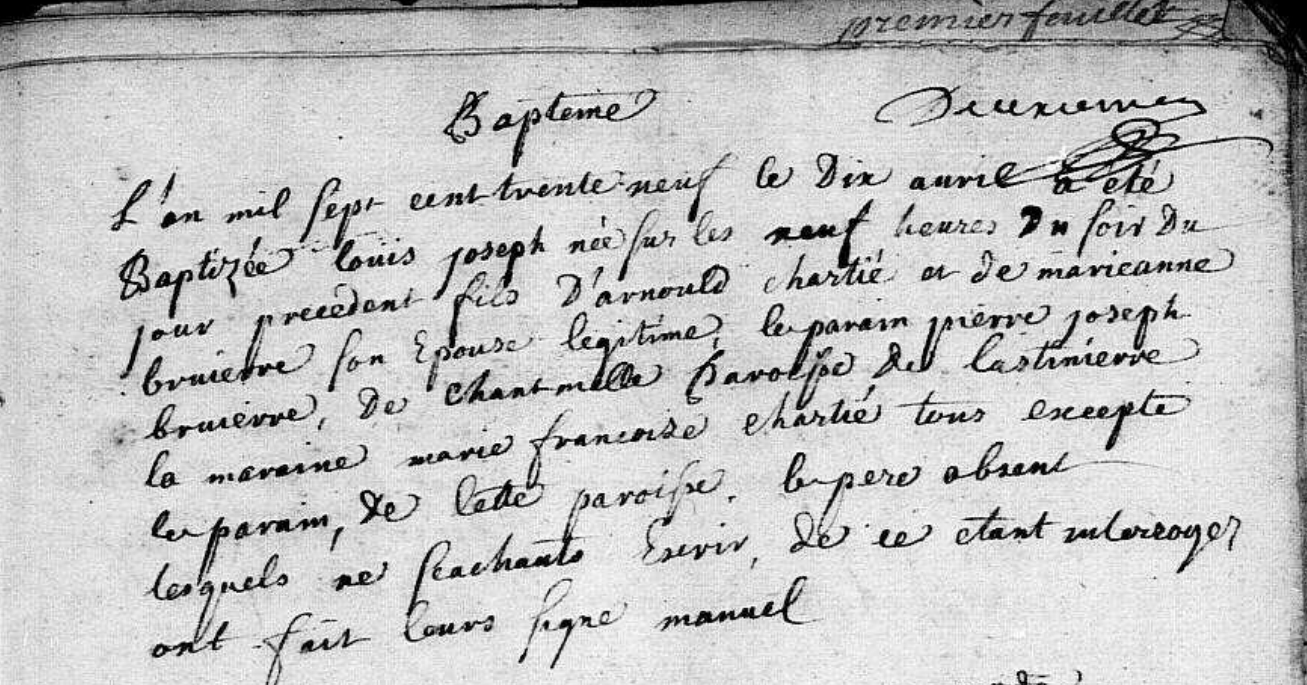 premier feuillet
Bapteme Deuxieme
L'an mil sept cent trente neuf le Dix avril a été
Baptizée loüis joseph née sur les neuf heures Du soir Du
jour precedent fils D'arnould chartié et de marieanne
bruierre son Epouse legitime, le parain pierre joseph
bruierre, De Chantmelle Paroisse De lastinierre
la maraine marie francoise chartié tous excepte
le parain, de cette paroisse. le pere absent
lesquels ne scachants Escrir, de ce etant interroger
ont fait leurs signe manuel